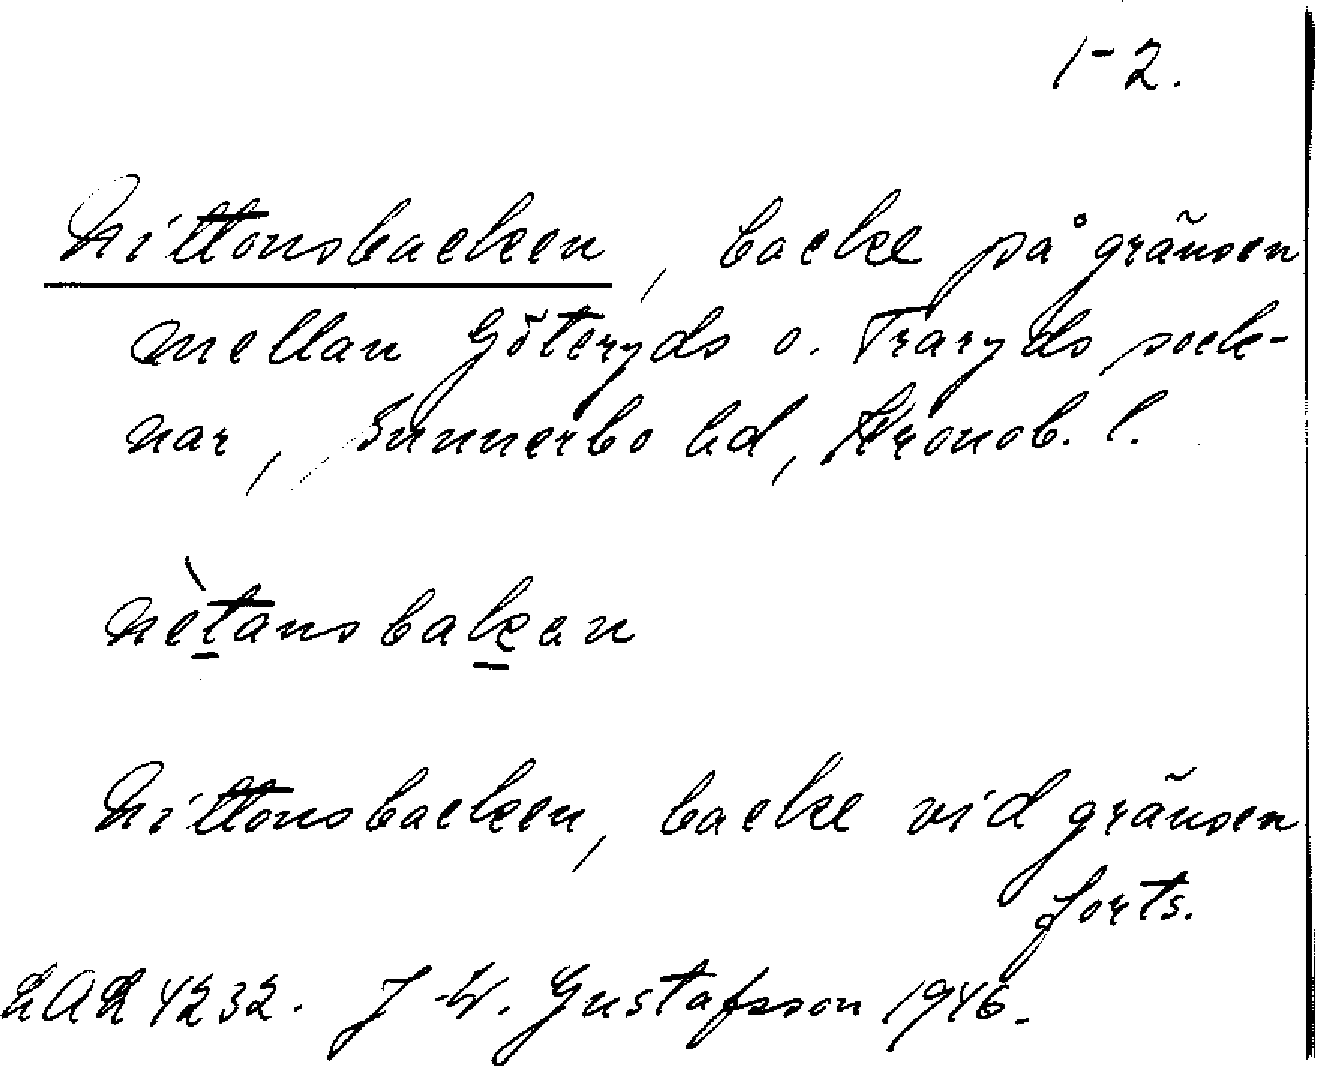 1-2.
Nittonsbacken, backe på gränsen
mellan Göteryds o. Traryds sock-
nar, Sunnerbo hd, Kronob. l.
nètansbakan
Nittonsbacken, backe vid gränsen
forts.
LAL 4232. J W. Gustafsson 1946.